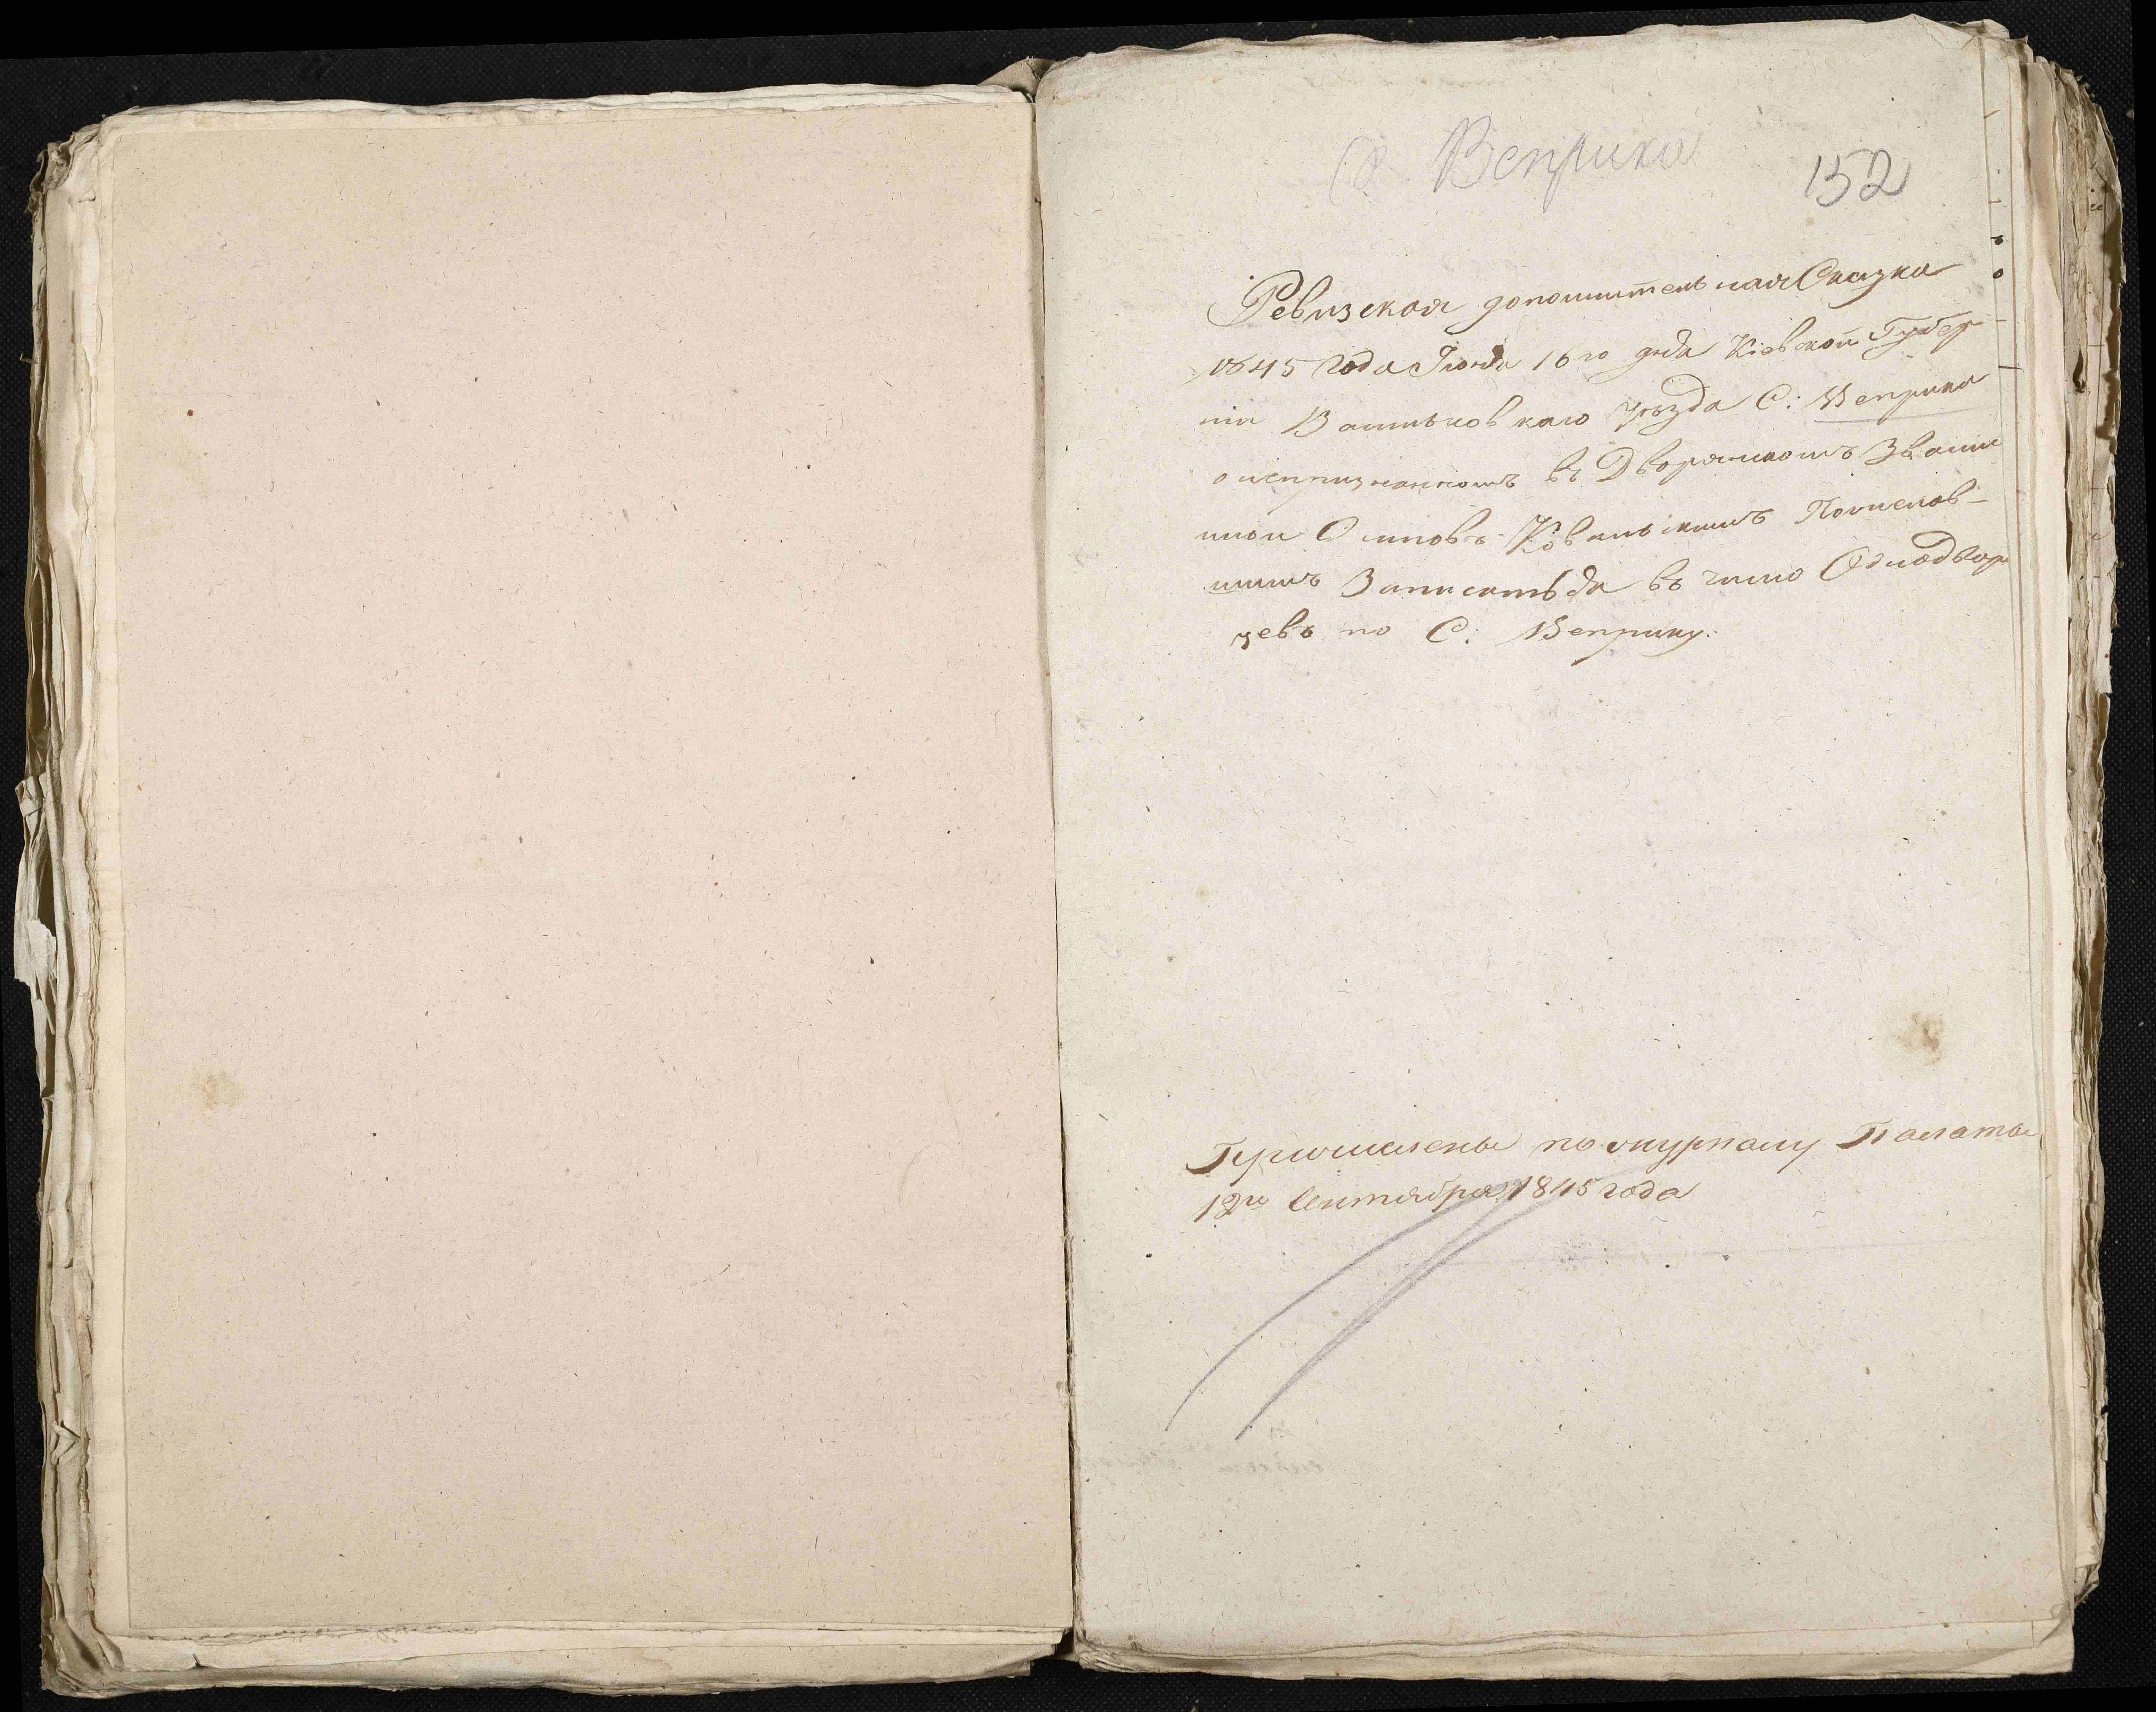 С. Веприка
152
Ревизская дополнительная Сказка
1845 года Июня 16го дня Кіевской Губер-
ніи Васильковскаго уѣзда С: Веприка
о непризнанномъ въ Дворянскомъ Звании
Ковальскимъ
Записатьса въ число Однодвор
цевъ по С: Веприку.
Причислены по журналу Палаты
12го Сентября 1845 года